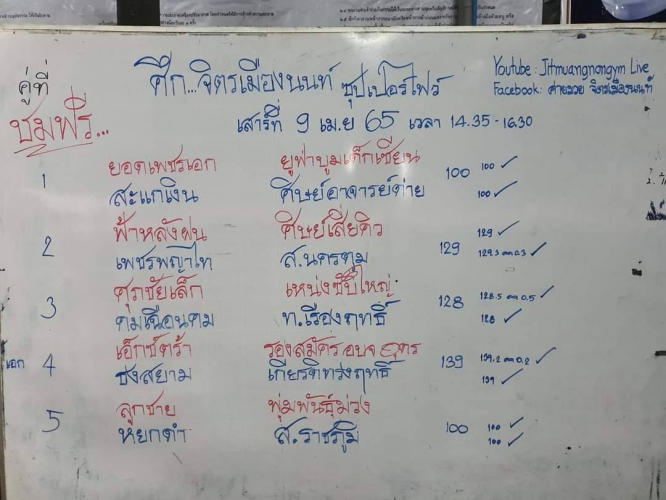 คู่ที่
ศึก...จิตรเมืองนนท์ ซุปเปอร์ไฟว์
Youtube : Jitmuangnongym Live
Facebook : ค่ายมวย จิตรเมืองนนท์
ชมฟรี...
เสาร์ที่ 9 เม.ย 65 เวลา 14.35 - 16.30
1 ยอดเพชรเอก ยูฟ่าบูมเด็กเซียน 100 100 ✓
สะแกเงิน ศิษย์อาจารย์ต่าย 100 ✓
2 ฟ้าหลังฝน ศิษย์เสี่ยคิว 129 129 ✓
เพชรพญาไท ส.นครตูม 129.3 ลด 0.3 ✓
3 ศุภชัยเล็ก เหน่งซับใหญ่ 128 128.5 ลด 0.5 ✓
คมเฉือนคม ท.เรืองฤทธิ์ 128 ✓
เอก 4 เอ็กซ์ตร้า รองสมัคร อบจ อุดร 139 139.2 ลด 0.2 ✓
ธงสยาม เกียรติทรงฤทธิ์ 139 ✓
5 ลูกชาย พุ่มพันธุ์ม่วง 100 100 ✓
หยกดำ ส.ราชภูมิ 100 ✓